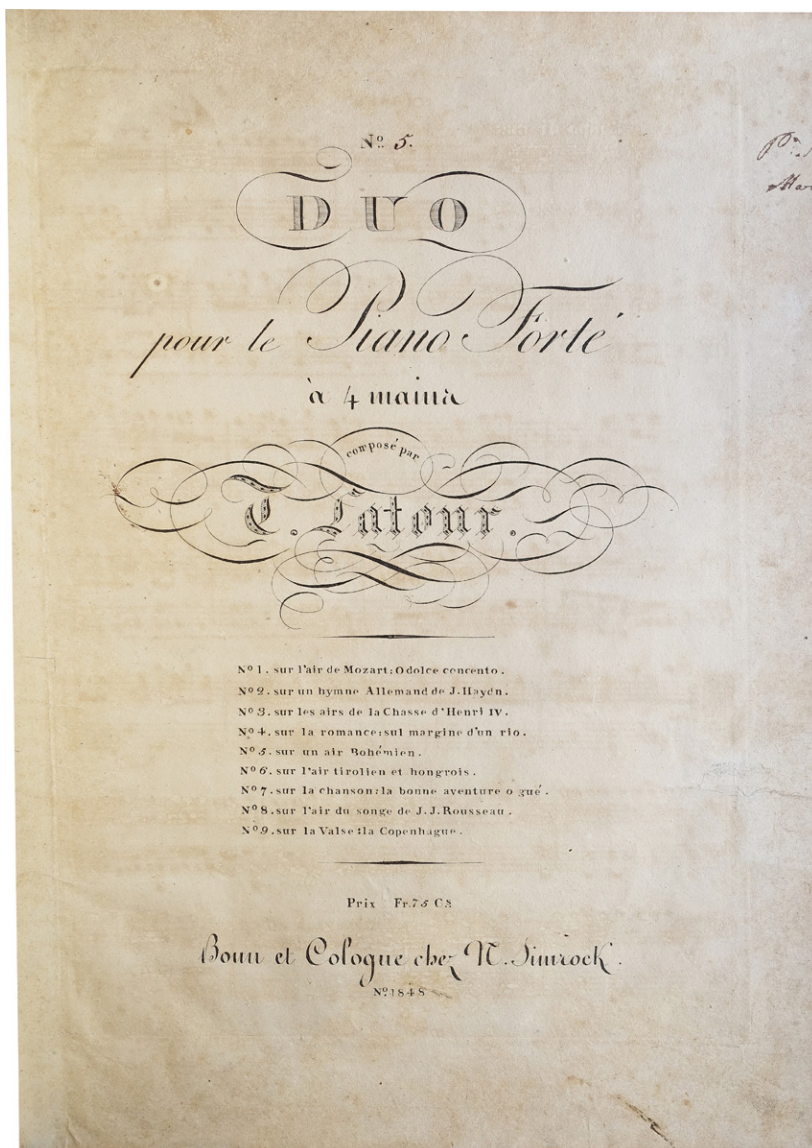 Nº 5.
DUO
pour le Piano Forté
à 4 mains
composé par
T. Latour.
Nº 1. sur l'air de Mozart: O dolce concento.
Nº 2. sur un hymne Allemand de J. Haydn.
Nº 3. sur les airs de la Chasse d'Henri IV.
Nº 4. sur la romance: sul margine d'un rio.
Nº 5. sur un air Bohémien.
Nº 6. sur l'air tirolien et hongrois.
Nº 7. sur la chanson: la bonne aventure o gué.
Nº 8. sur l'air du songe de J. J. Rousseau.
Nº 9. sur la Valse: la Copenhague.
Prix Fr. 75 Cs
Bonn et Cologne chez N. Simrock.
Nº 1848